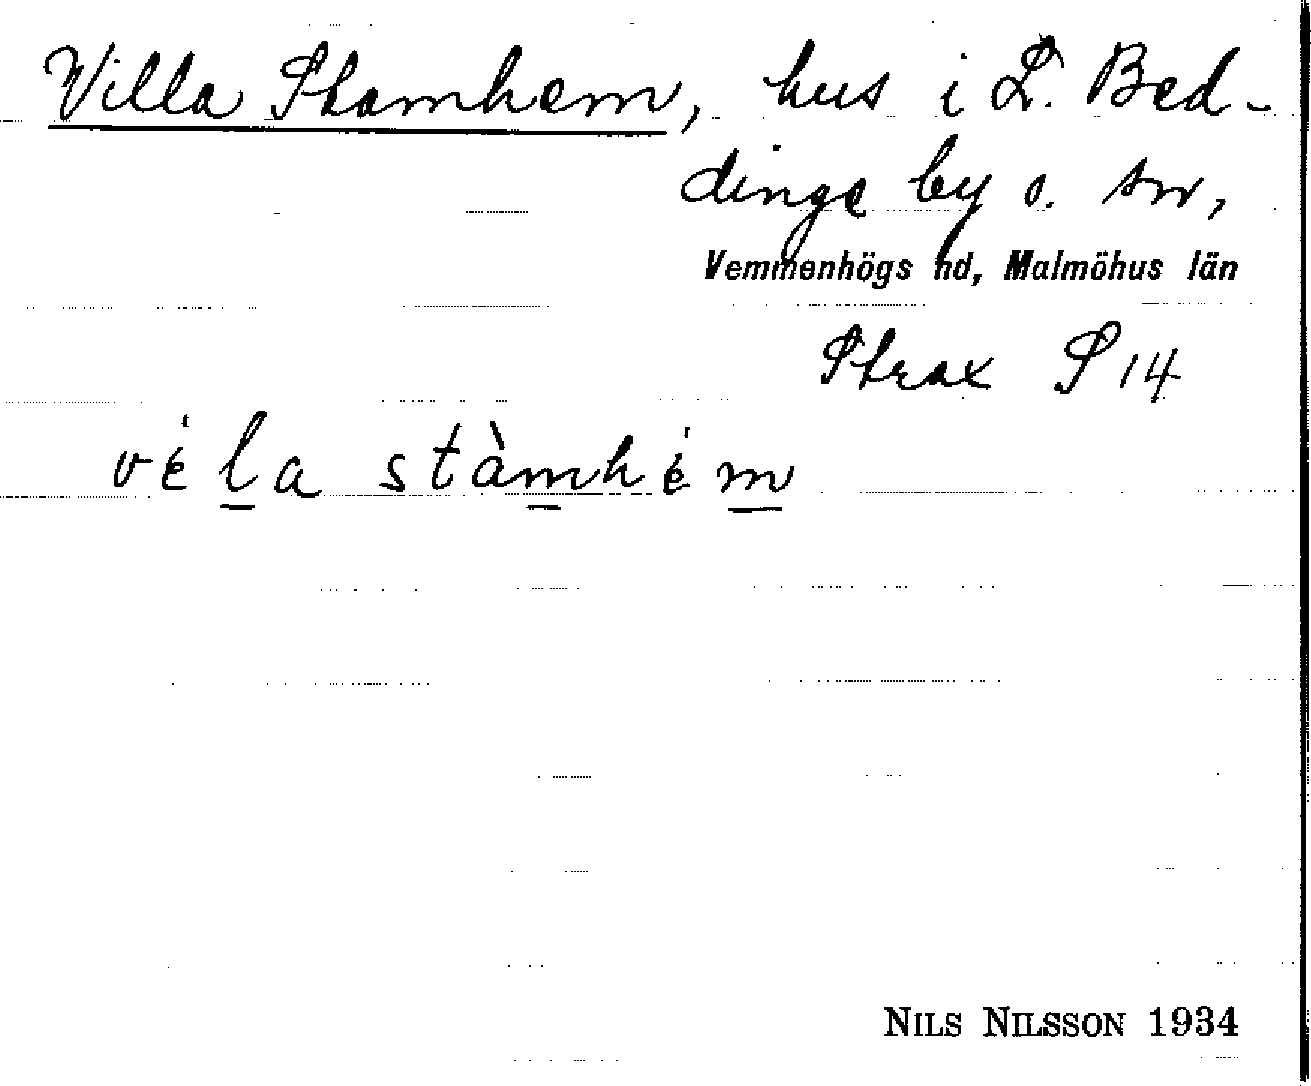 Villa Stamhem, hus i L. Bed-
dinge by o. sn,
Vemmenhögs hd, Malmöhus län
Strax S 14
vela stàmhem
NILS NILSSON 1934